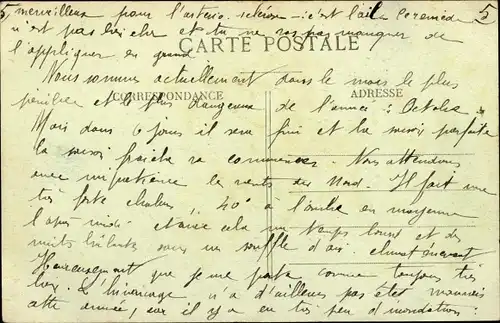 5,
5
merveilleux pour l'artério-sclérose : c'est l'ail. Ce remède
n'est pas bien cher et tu ne vas pas manquer de
l'appliquer en grand
CARTE POSTALE
Nous sommes actuellement dans le mois le plus
CORRESPONDANCE
ADRESSE
pénible et le plus dangereux de l'année : Octobre
Mais dans 6 jours il sera fini et la saison parfaite
la saison fraîche va commencer. Nous attendons
avec impatience le vents du Nord. Il fait une
très forte chaleur, 40° à l'ombre en moyenne
l'après midi et avec cela un temps lourd et des
nuits brûlantes sans un souffle d'air. climat énervant
Heureusement que je me porte comme toujours très
bien. L'hivernage n'a d'ailleurs pas été mauvais
cette année, car il y a eu très peu d'inondations :